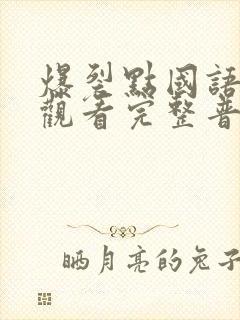 爆裂點國語
觀看完整普
晒月亮的兔子